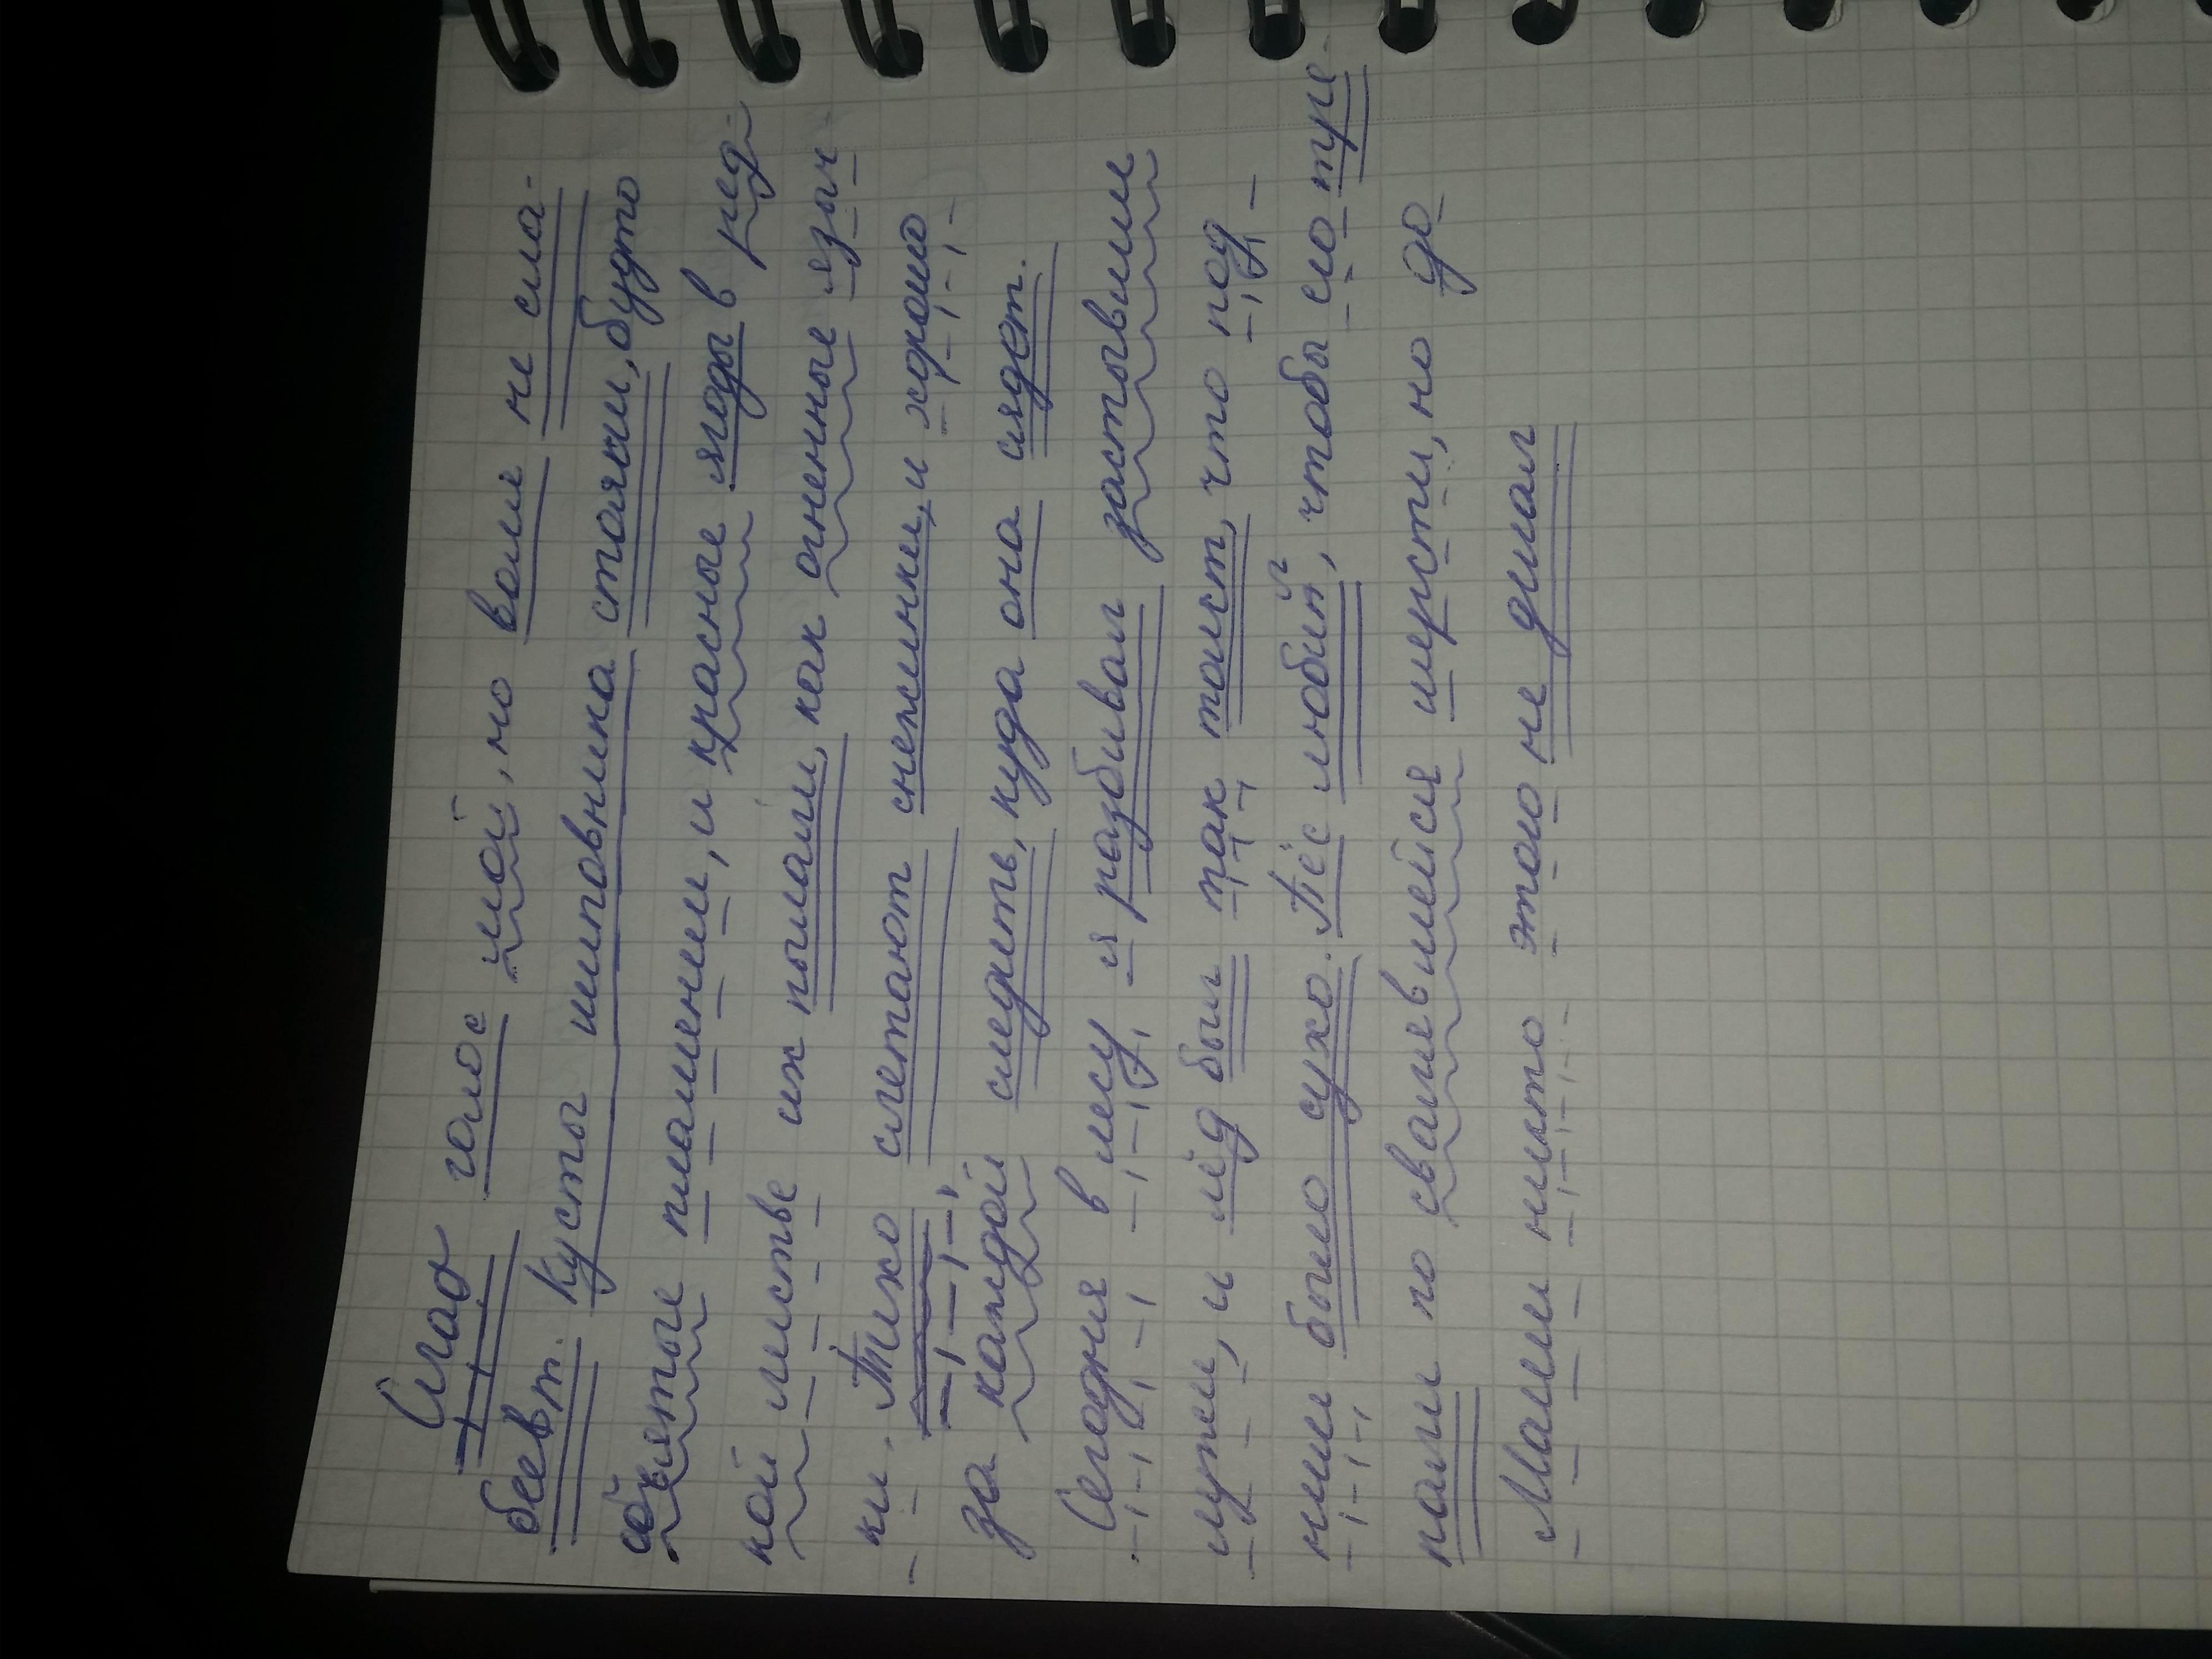 Слаб голос мой, но воля не сла-
беет. Кусты шиповника стояли, будто
объятые пламенем, и красные ягоды в ред-
кой листве их пылали, как огненные языч
ки. Тихо слетают снежинки, и хорошо
за каждой следить, куда она сядет.
Сегодня в лесу я разбивал застывшие
лужи, и лёд был так толст, что под
ним было сухо. Пёс любил, чтобы его тре
пали по свалявшейся шерсти, но до
Мали никто этого не делал